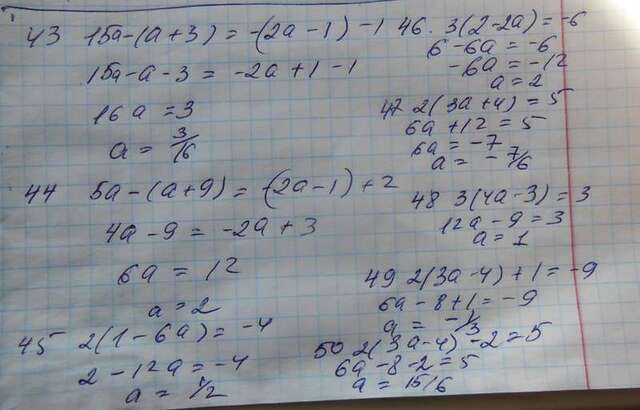 43 15a-(a+3) = -(2a-1) -1
15a-a-3 = -2a+1-1
16a = 3
a = 3/16
44 5a-(a+9) = -(2a-1)+2
4a-9 = -2a+3
6a = 12
a = 2
45 2(1-6a) = -4
2-12a = -4
a = 1/2
46. 3(2-2a) = -6
6-6a = -6
-6a = -12
a = 2
47 2(3a+4) = 5
6a+12 = 5
6a = -7
a = -7/6
48 3(4a-3) = 3
12a-9 = 3
a = 1
49 2(3a-4)+1 = -9
6a-8+1 = -9
a = -1/3
50 2(3a-4)-2 = 5
6a-8-2 = 5
a = 15/6